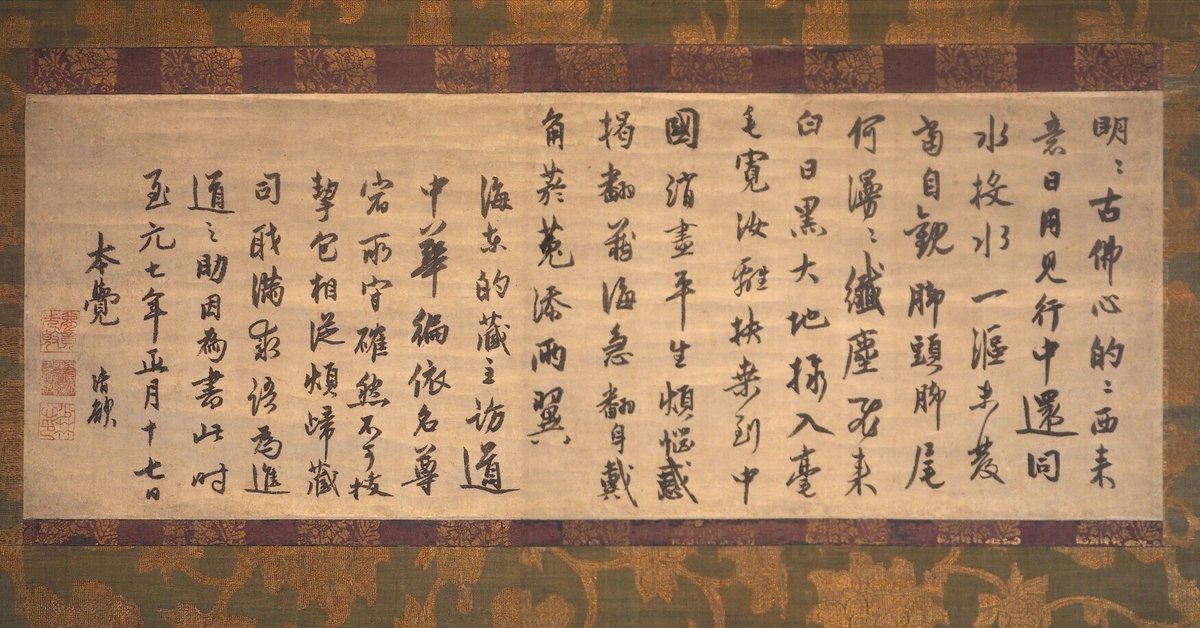 明〻古佛心的〻西来
意日用見行中還同
水投水一漚未發
當自觀脚頭脚尾
何漫〻纖塵不来
白日黒大地入毫
毛寛汝離扶桒到中
國消盡平生煩惱惑
揭翻藏海急翻身戴
角菸菟添兩翼
海東的藏主訪道
中華徧依名尊
宿所守確然不可拔
挈包相從煩歸藏
司職滿求語為進
道之助因為書此时
至元七年正月十七日
本覺 清欲